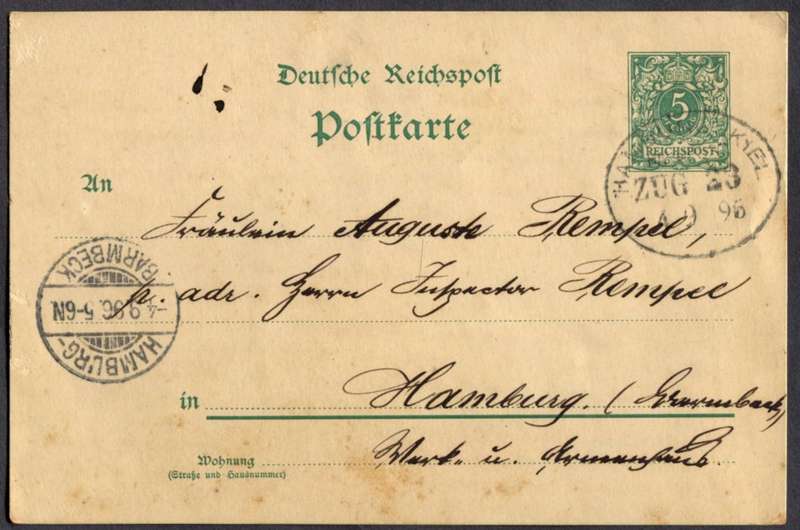 Deutsche Reichspost
Postkarte
5
REICHSPOST
KIEL
ZUG 23
4 9 96
An
Fräulein Auguste Rempel,
p. adr. Herrn Inspector Rempel
HAMBURG-BARMBECK
-4.9.96.5-6N.
in Hamburg. (Barmbeck,
Wohnung
(Straße und Hausnummer)
Werk- u. Armenhaus.